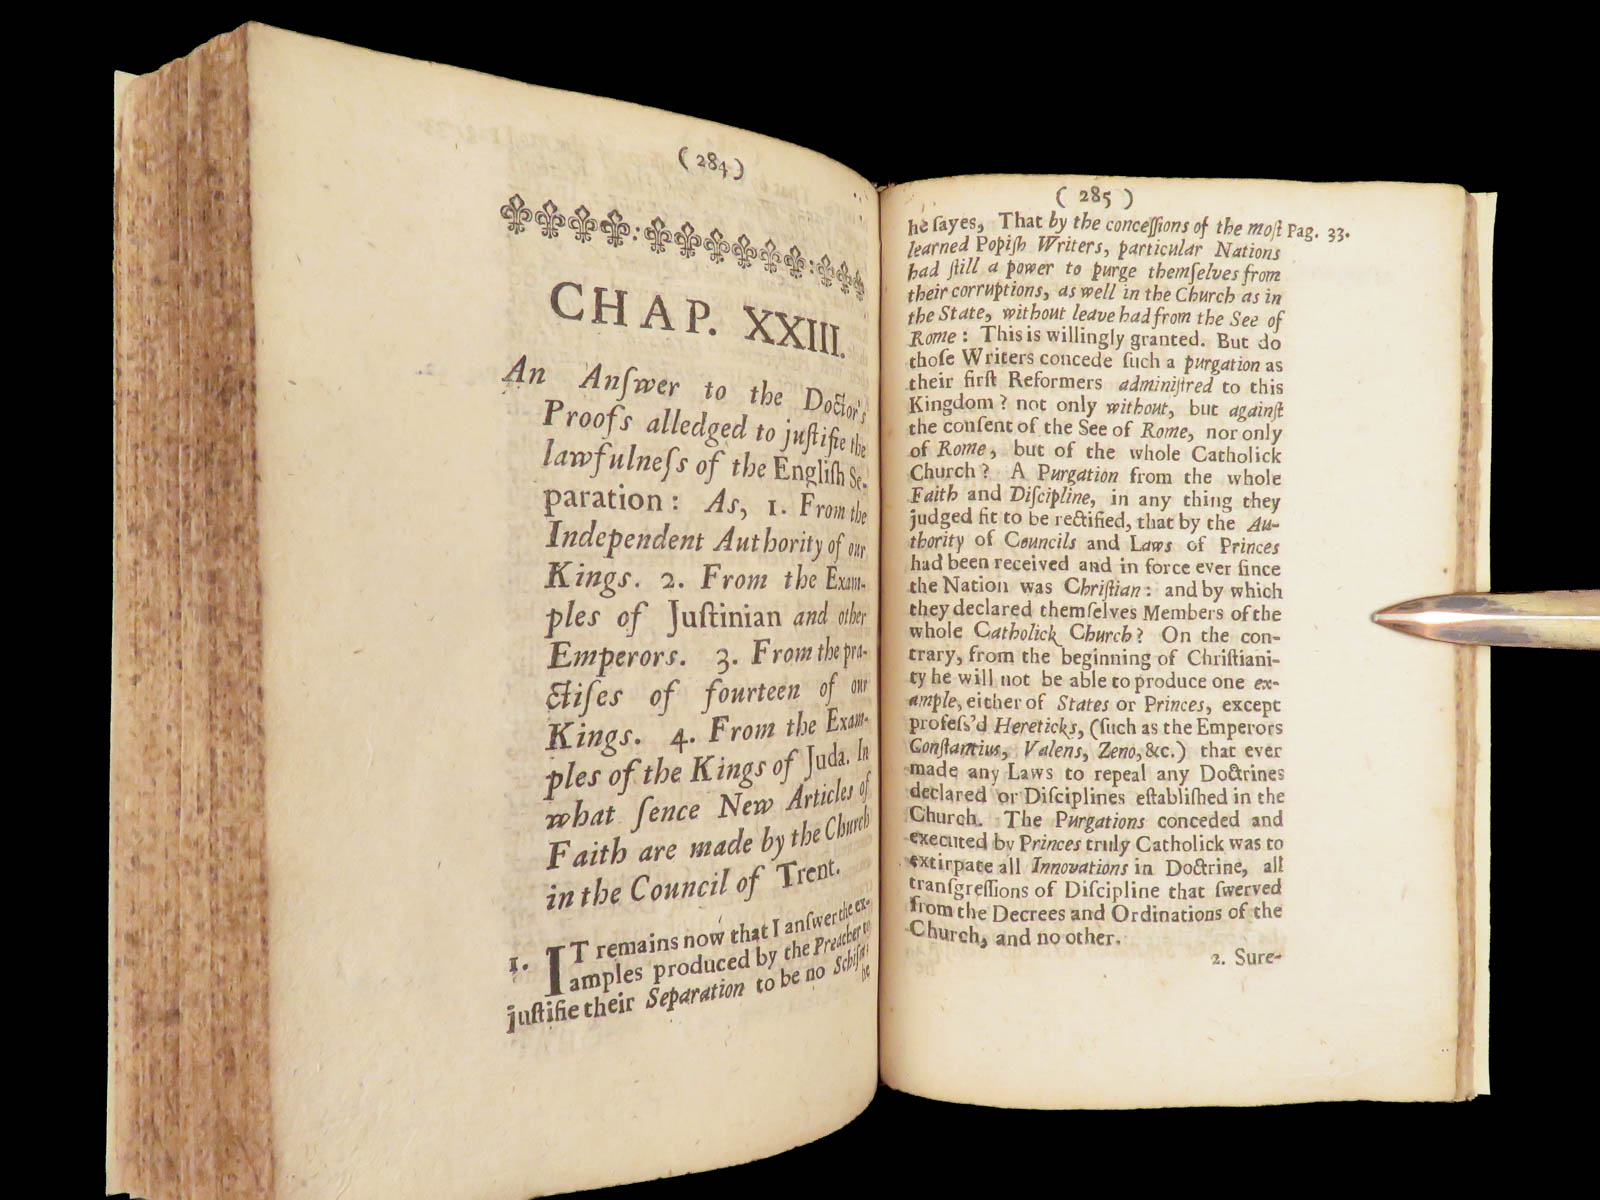 ( 284 )
CHAP. XXIII.
An Anſwer to the Doctor's
Proofs alledged to juſtifie the
lawfulneſs of the Engliſh Se-
paration : As, 1. From the
Independent Authority of our
Kings. 2. From the Exam-
ples of Juſtinian and other
Emperors. 3. From the pra-
ctiſes of fourteen of our
Kings. 4. From the Exam-
ples of the Kings of Juda. In
what ſence New Articles of
Faith are made by the Church
in the Council of Trent.
1. IT remains now that I anſwer the ex-
amples produced by the Preacher to
juſtifie their Separation to be no
he
( 285 )
he ſayes, That by the conceſſions of the moſt Pag. 33.
learned Popiſh Writers, particular Nations
had ſtill a power to purge themſelves from
their corruptions, as well in the Church as in
the State, without leave had from the See of
Rome : This is willingly granted. But do
thoſe Writers concede ſuch a purgation as
their firſt Reformers adminiſtred to this
Kingdom ? not only without, but againſt
the conſent of the See of Rome, nor only
of Rome, but of the whole Catholick
Church ? A Purgation from the whole
Faith and Diſcipline, in any thing they
judged fit to be rectified, that by the Au-
thority of Councils and Laws of Princes
had been received and in force ever ſince
the Nation was Chriſtian : and by which
they declared themſelves Members of the
whole Catholick Church ? On the con-
trary, from the beginning of Chriſtiani-
ty he will not be able to produce one ex-
ample, either of States or Princes, except
profeſs'd Hereticks, (ſuch as the Emperors
Conſtantius, Valens, Zeno, &c.) that ever
made any Laws to repeal any Doctrines
declared or Diſciplines eſtabliſhed in the
Church. The Purgations conceded and
executed by Princes truly Catholick was to
extirpate all Innovations in Doctrine, all
tranſgreſſions of Diſcipline that ſwerved
from the Decrees and Ordinations of the
Church, and no other.
2. Sure-